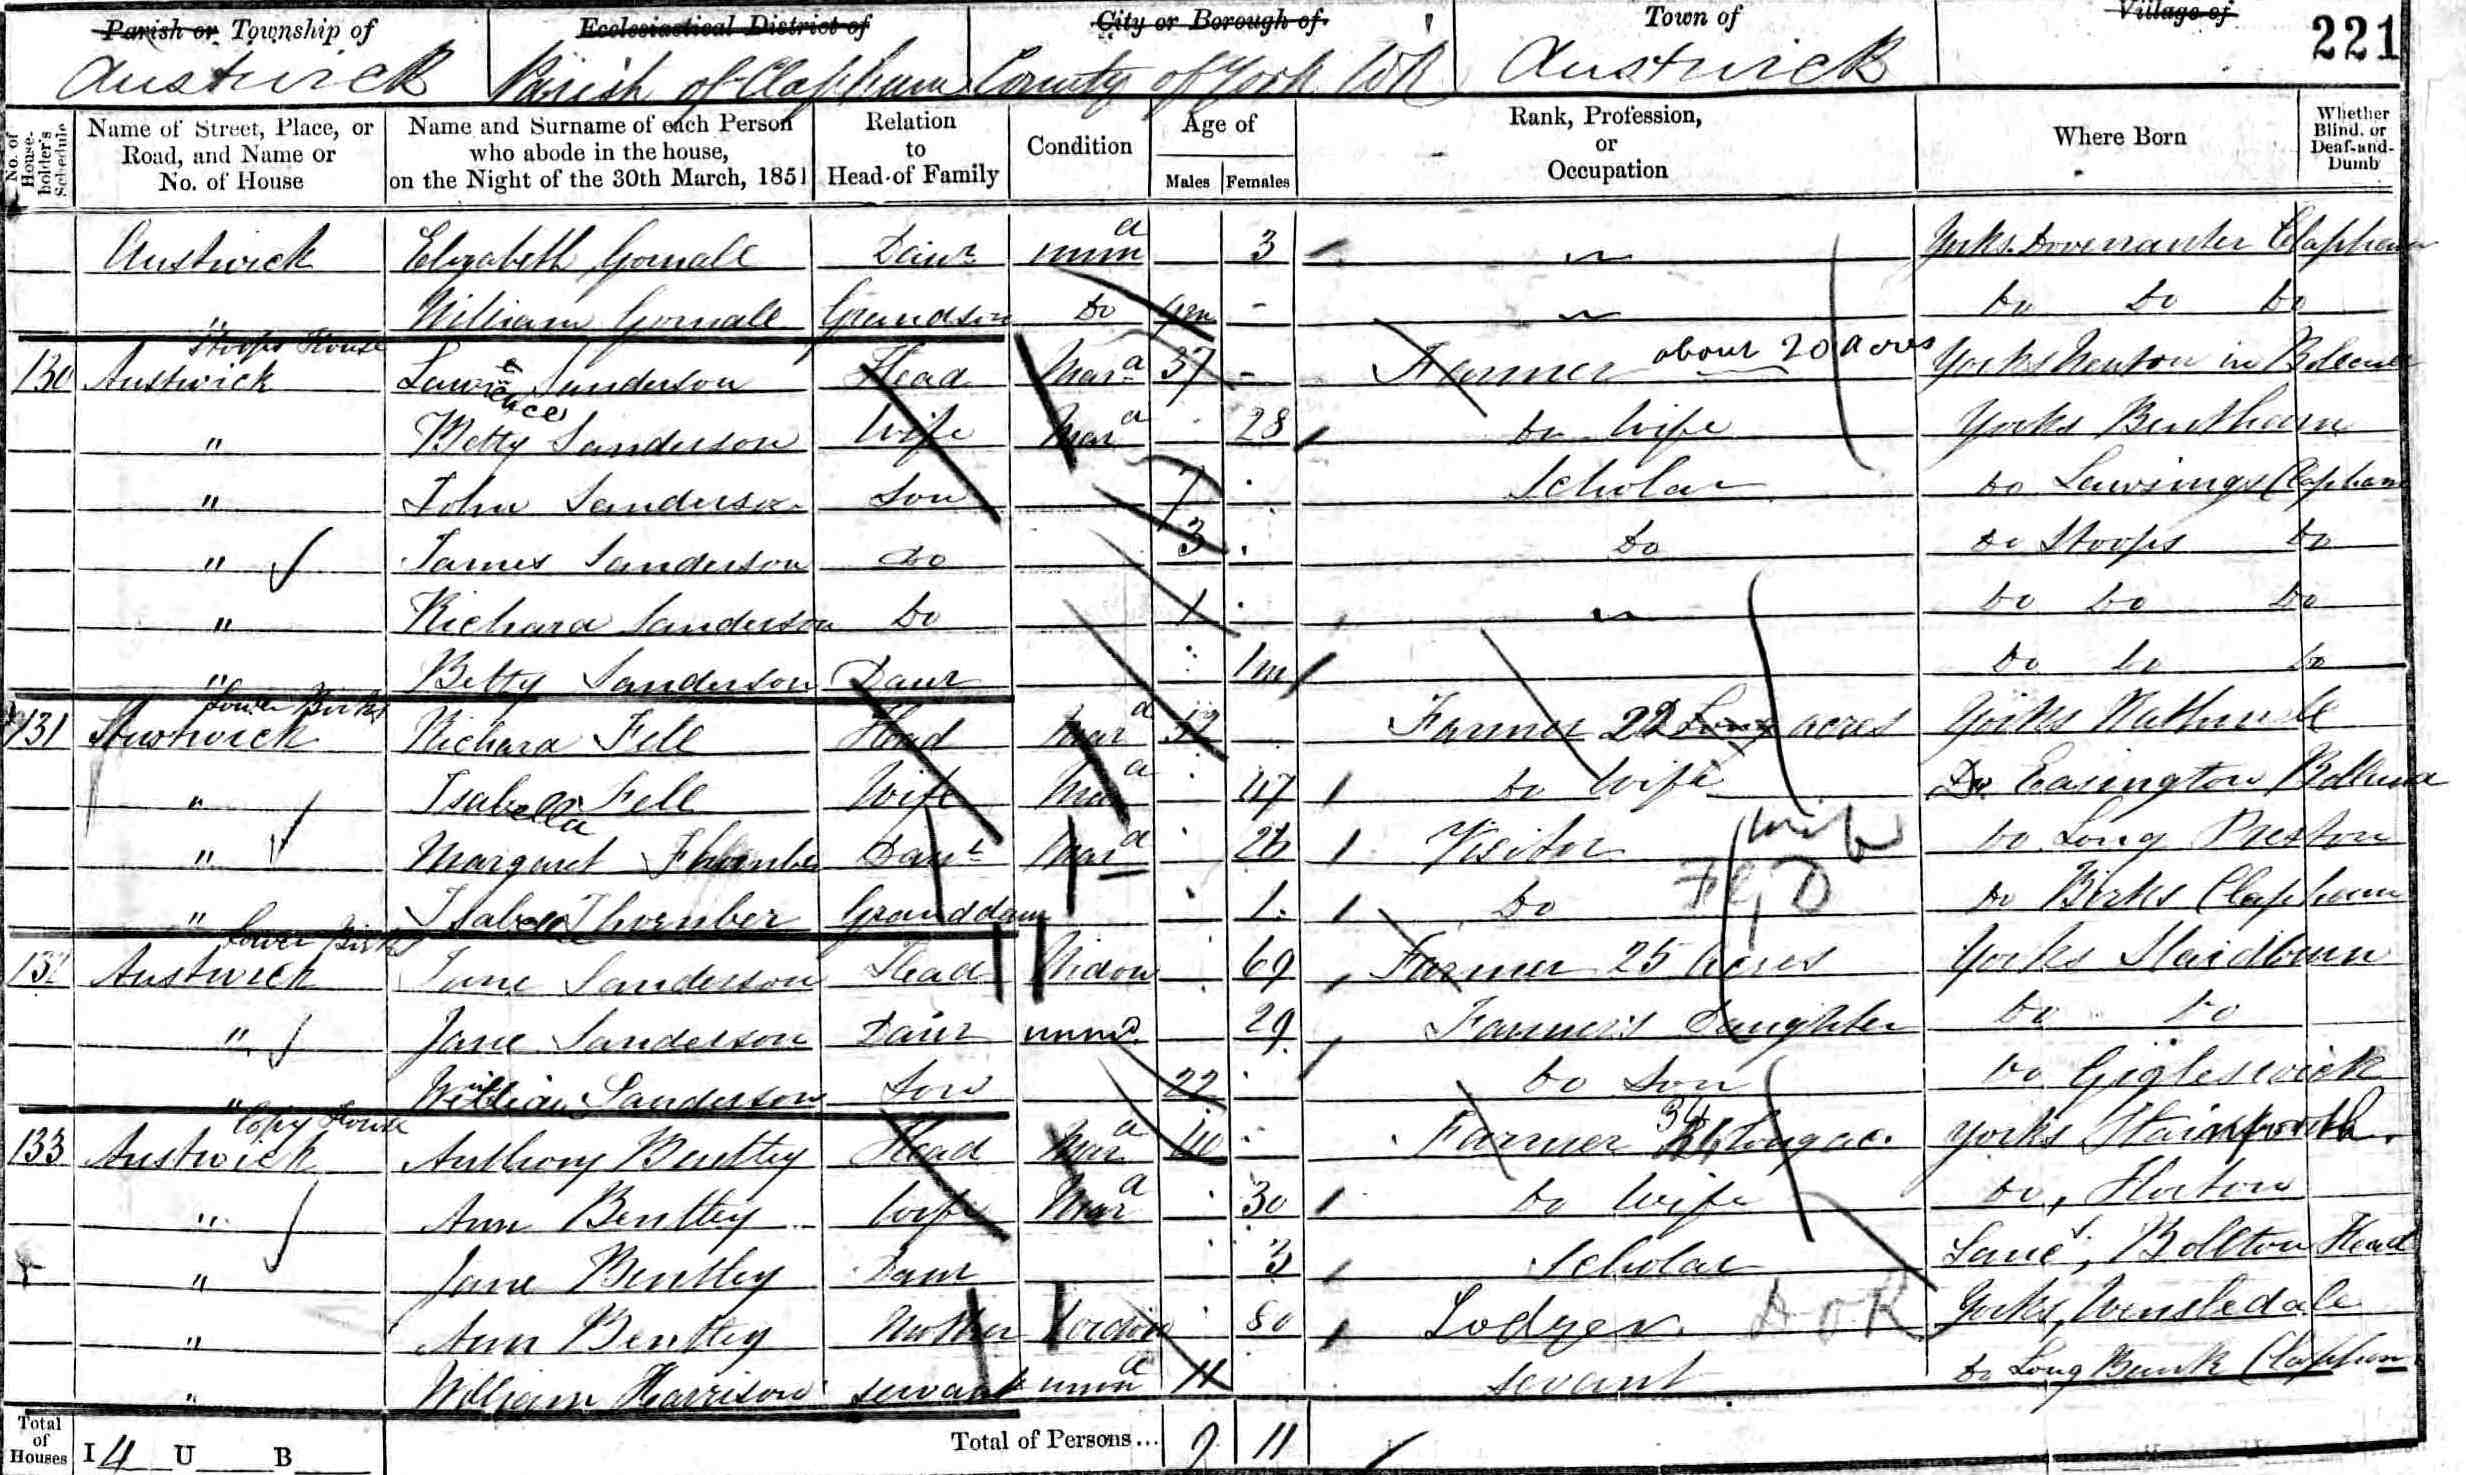 Parish or Township of Ecclesiastical District of City or Borough of Town of Village of 221
Austwick Parish of Clapham County of York WR Austwick
No. of House-holder's Schedule
Name of Street, Place, or Road, and Name or No. of House
Name and Surname of each Person who abode in the house, on the Night of the 30th March, 1851
Relation to Head of Family
Condition
Age of
Males Females
Rank, Profession, or Occupation
Where Born
Whether Blind, or Deaf-and-Dumb
Austwick Elizabeth Gornall Daur unma 3 Yorks Clapham
" William Gornall Grandson Do - Do Do Do
Stoops House
130 Austwick Lawrence Sanderson Head Mara 37 - Farmer about 20 acres Yorks Newton in
" Betty Sanderson Wife Mara 28 Do Wife Yorks Bentham
" John Sanderson Son 7 Scholar Do Clapham
" James Sanderson Do 3 Do Do Stoops Do
" Richard Sanderson Do 1 Do Do Do
" Betty Sanderson Daur 1m Do Do Do
Lower Birks
131 Austwick Richard Fell Head Mara 52 Farmer 22 Long acres Yorks
" Isabella Fell Wife Mara 47 Do Wife Do Easington
" Margaret Thornber Daur Mara 26 Visitor Do Long Preston
wife
" Isabella Thornber Granddaur 1 Do Do Birks Clapham
Lower Birks
132 Austwick Jane Sanderson Head Widow 69 Farmer 25 Acres Yorks Slaidburn
" Jane Sanderson Daur unma 29 Farmer's Daughter Do Do
" William Sanderson Son 22 Do Son Do Gigleswick
Copy House
133 Austwick Anthony Bentley Head Mara 40 Farmer 34 Yorks Stainforth
" Ann Bentley Wife Mara 30 Do Wife Do, Horton
" Jane Bentley Daur 3 Scholar Lanc, Bollton Head
" Ann Bentley Mother Widow 80 Lodger Yorks, Wensledale
" William Harrison servant unma 11 servant Do Long Bank Clapham
Total of Houses I 4 U B Total of Persons... 9 11